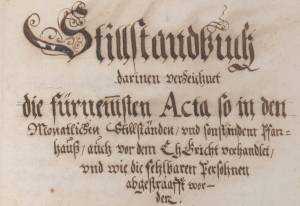 Stillstandbuch
darinen verzeichnet
die fürnemsten Acta so in den
Monatlichen Stillständen / und sonst in dem Pfar-
hauß / auch vor dem Ehgricht verhandlet /
und wie die fehlbaren Persohnen
abgestrafft wor-
den.